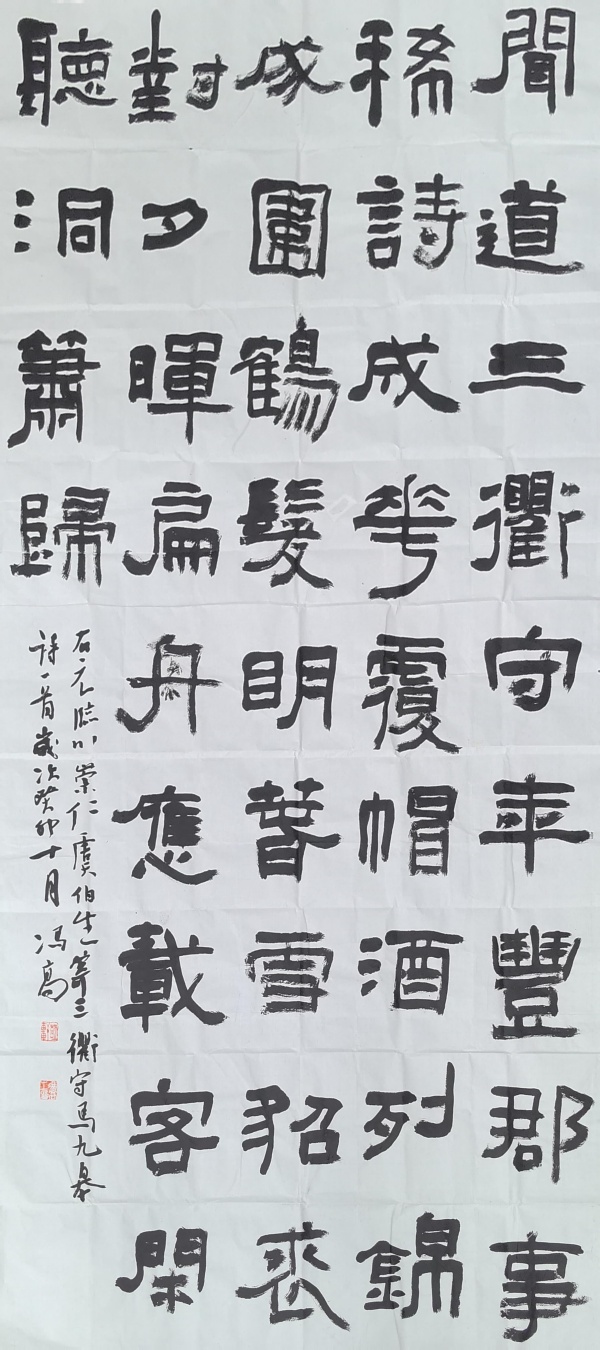 聞道三衢守年豐郡事
稀詩成花覆帽酒列錦
成圍鶴髮明春雪貂裘
對夕暉扁舟應載客閑
聽洞簫歸
右元臨川崇仁虞伯生寄三衢守馬九皋
詩一首歲次癸卯十月冯高